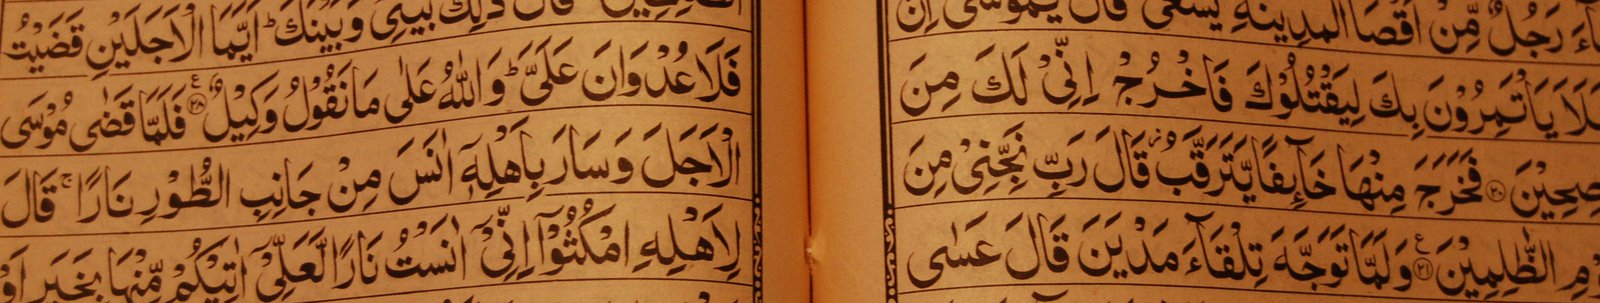 رَجُلٌ مِّنْ اَقْصَا الْمَدِيْنَةِ يَسْعٰى قَالَ يٰمُوْسٰى اِنَّ
يَاْتَمِرُوْنَ بِكَ لِيَقْتُلُوْكَ فَاخْرُجْ اِنِّيْ لَكَ مِنَ
صِحِيْنَ ۲۰ فَخَرَجَ مِنْهَا خَآئِفًا يَّتَرَقَّبُ ز قَالَ رَبِّ نَجِّنِيْ مِنَ
الظّٰلِمِيْنَ ۲۱ ع وَلَمَّا تَوَجَّهَ تِلْقَآءَ مَدْيَنَ قَالَ عَسٰى
قَالَ ذٰلِكَ بَيْنِيْ وَبَيْنَكَ ط اَيَّمَا الْاَجَلَيْنِ قَضَيْتُ
فَلَا عُدْوَانَ عَلَيَّ ط وَاللّٰهُ عَلٰى مَا نَقُوْلُ وَكِيْلٌ ۲۸ ع فَلَمَّا قَضٰى مُوْسَى
الْاَجَلَ وَسَارَ بِاَهْلِهٖٓ اٰنَسَ مِنْ جَانِبِ الطُّوْرِ نَارًا ج قَالَ
لِاَهْلِهِ امْكُثُوْٓا اِنِّيْٓ اٰنَسْتُ نَارًا لَّعَلِّيْٓ اٰتِيْكُمْ مِّنْهَا بِخَبَرٍ اَوْ